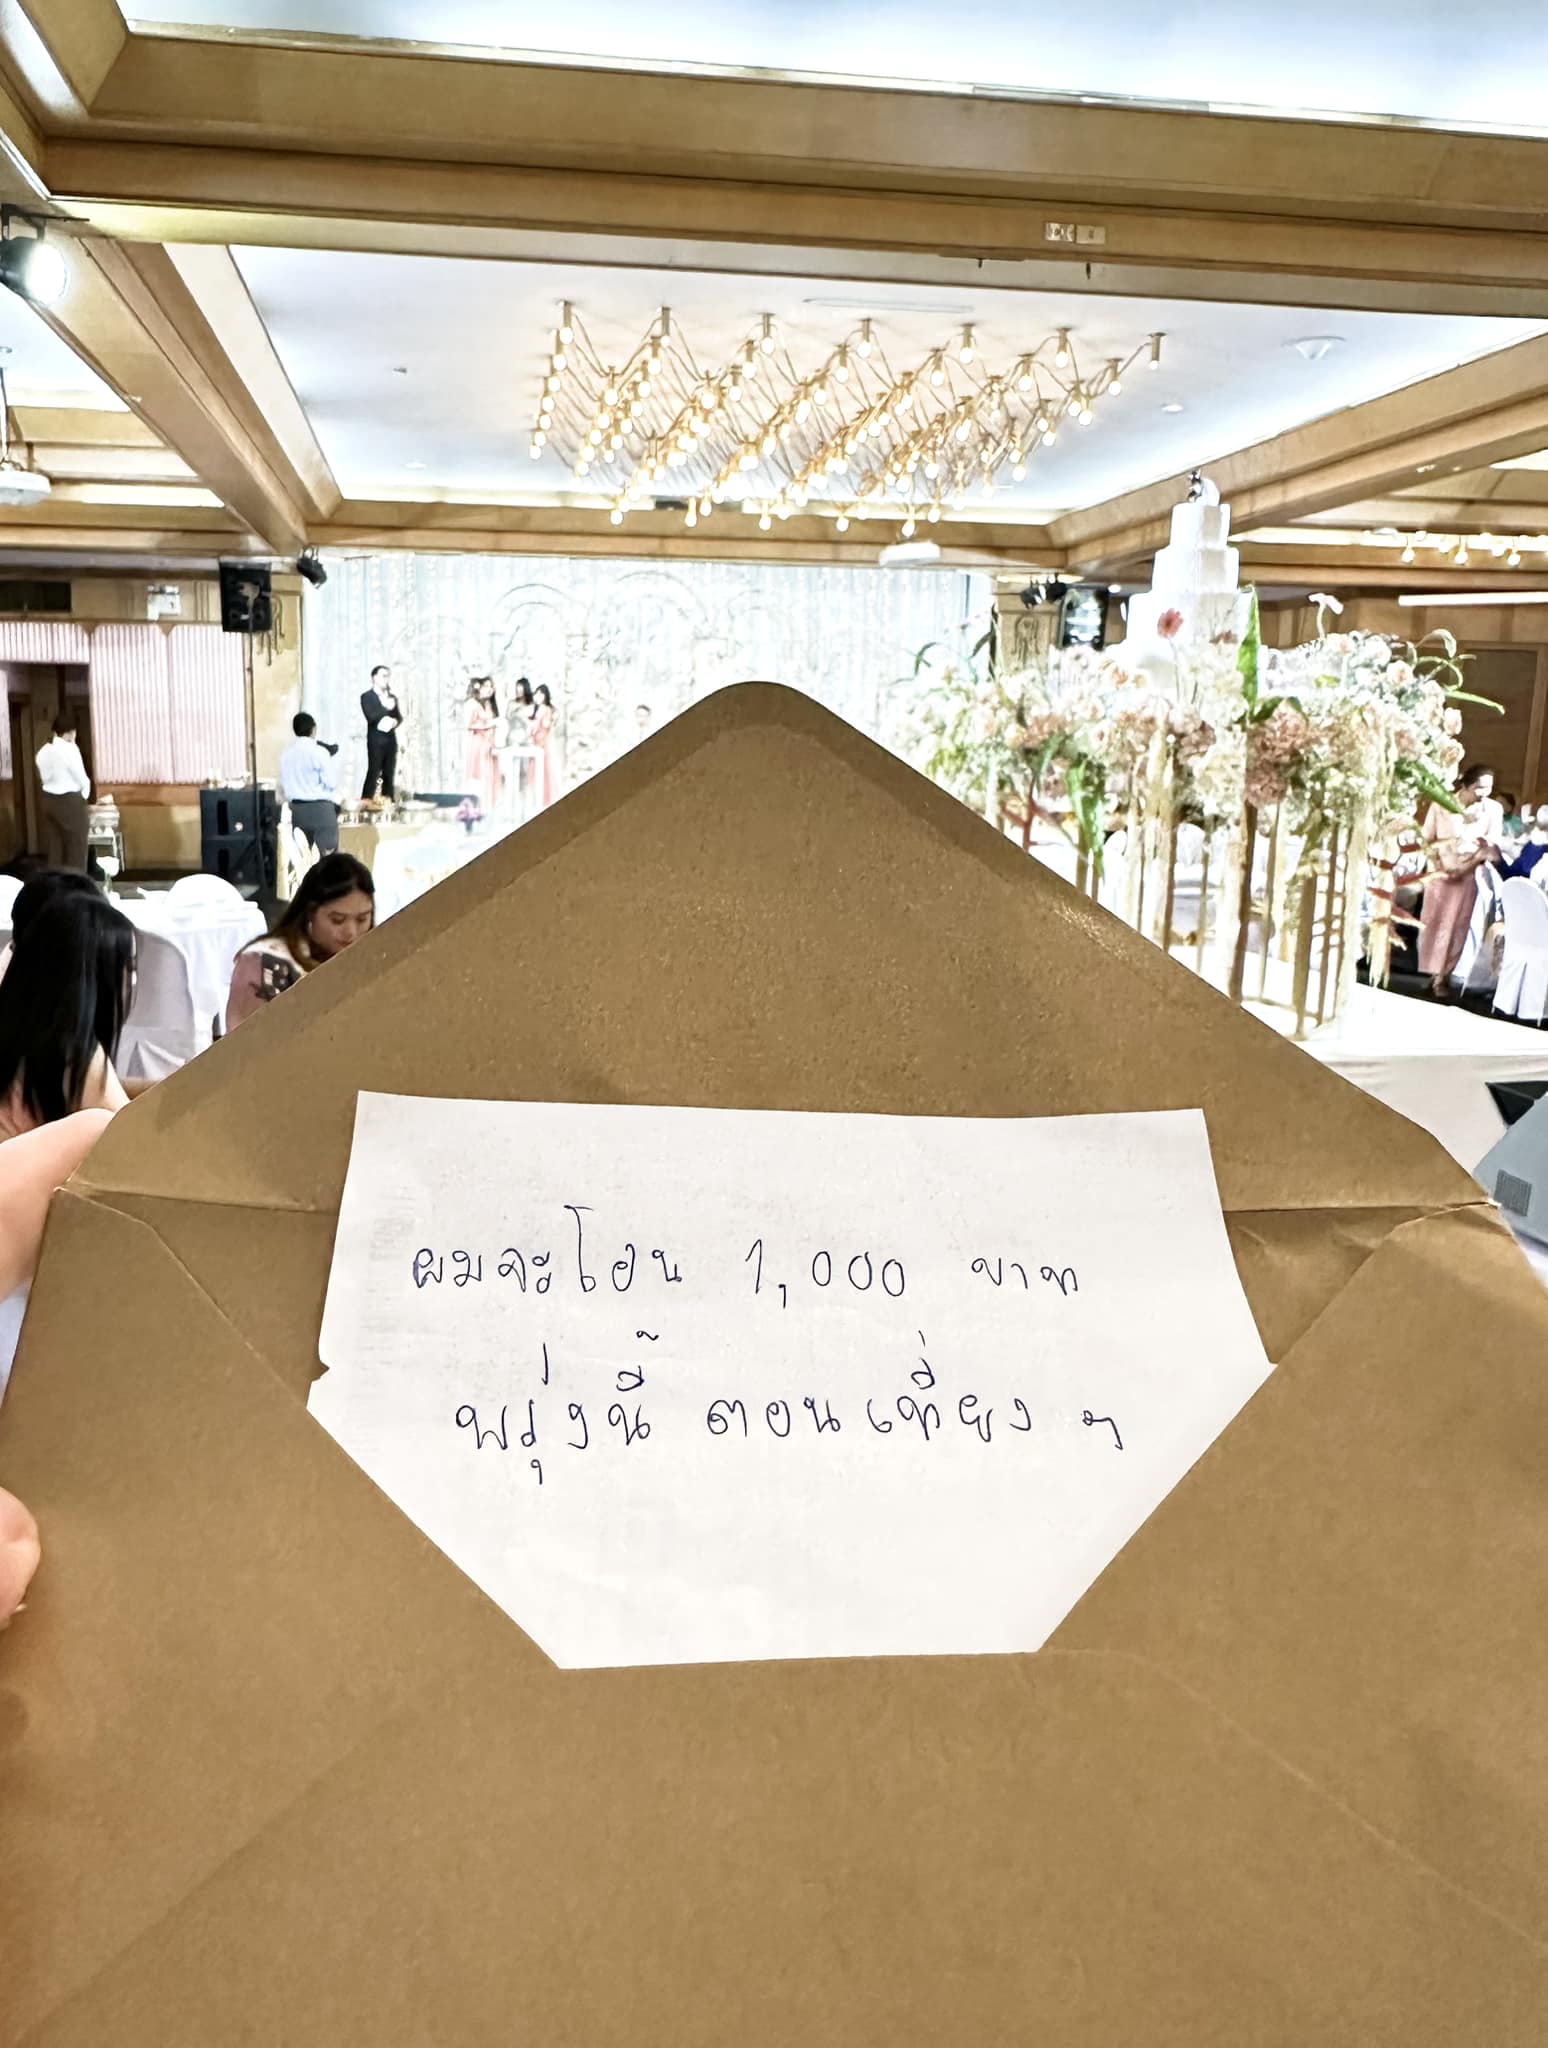 ผมจะโอน 1,000 บาท
พรุ่งนี้ ตอนเที่ยง ๆ